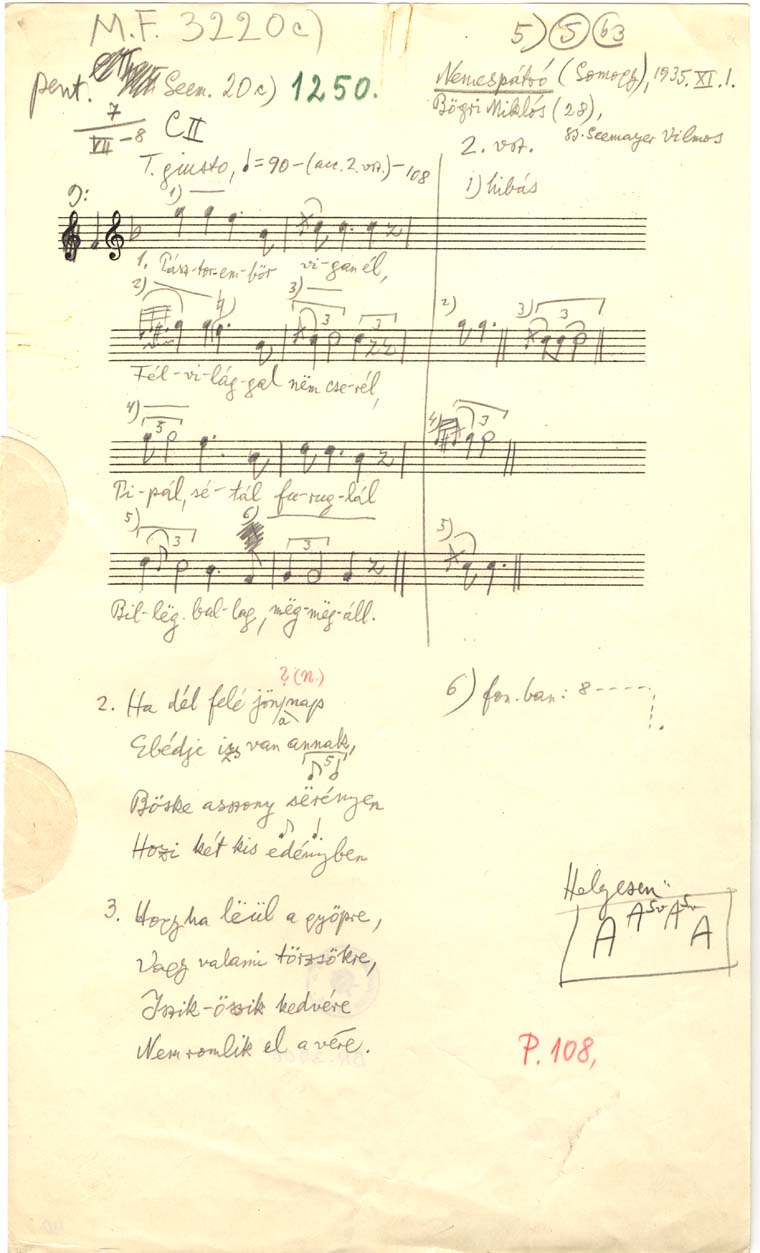 M.F. 3220c)
5) 5 b3
pent. Seem. 20c) 1250.
Nemespátró (Somogy), 1935. XI. 1.
Bögri Miklós (28),
gy. Seemayer Vilmos
7
VII - 8
C II
2. vsz.
T. giusto, = 90 - (acc. 2. vsz.) - 108
1) hibás
1)
1. Pász-tor-em-bör vi-gan él,
2) 3)
2) 3)
Fél-vi-lág-gal nëm cse-rél,
4)
4)
Ti-pál, sé-tál fu-rug-lál
5) 6)
5)
Bil-lëg-bal-lag, mëg-mëg-áll.
? (n.)
2. Ha dél felé jön, naps
6) fon. ban: 8
Ebédje isz van annak,
Böske asszony sërényen
Hozi két kis edényben
3. Hogyha lëül a gyöpre,
Vagy valami törzsökre,
Iszik-öszik kedvére
Nem romlik el a vére.
Helyesen:
A A5v A5v A
P. 108,